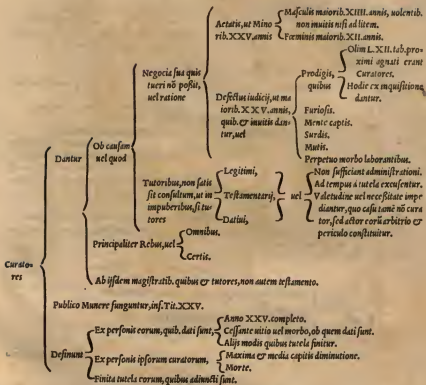 Masculis maiorib. XIIII. annis, uolentib.
non inuitis nisi ad litem.
Fœminis maiorib. XII. annis.
Aetatis, ut Mino
rib. XXV. annis
Negocia sua quis
tueri nõ possit,
uel ratione
Defectus iudicij, ut ma
iorib. XXV. annis,
quib. & inuitis dan-
tur, uel
Prodigis,
quibus
Olim L. XII. tab. pro-
ximi agnati erant
Curatores.
Hodie ex inquisitione
dantur.
Furiosis.
Mente captis.
Surdis.
Mutis.
Perpetuo morbo laborantibus.
Ob causam
uel quod
Tutoribus, non satis
sit consultum, ut in
impuberibus, si tu-
tores
Legitimi,
Testamentarij,
Datiui,
uel
Non sufficiant administrationi.
Ad tempus à tutela excusentur.
Valetudine uel necessitate impe
diantur, quo casu tamẽ nõ cura
tor, sed actor eorũ arbitrio &
periculo constituitur.
Dantur
Principaliter Rebus, uel
Omnibus.
Certis.
Ab ijsdem magistratib. quibus & tutores, non autem testamento.
Curato-
res
Publico Munere funguntur, inf. Tit. XXV.
Desinunt
Ex personis eorum, quib. dati sunt,
Anno XXV. completo.
Cessante uitio uel morbo, ob quem dati sunt.
Alijs modis quibus tutela finitur.
Ex personis ipsorum curatorum,
Maxima & media capitis diminutione.
Morte.
Finita tutela eorum, quibus adiuncti sunt.